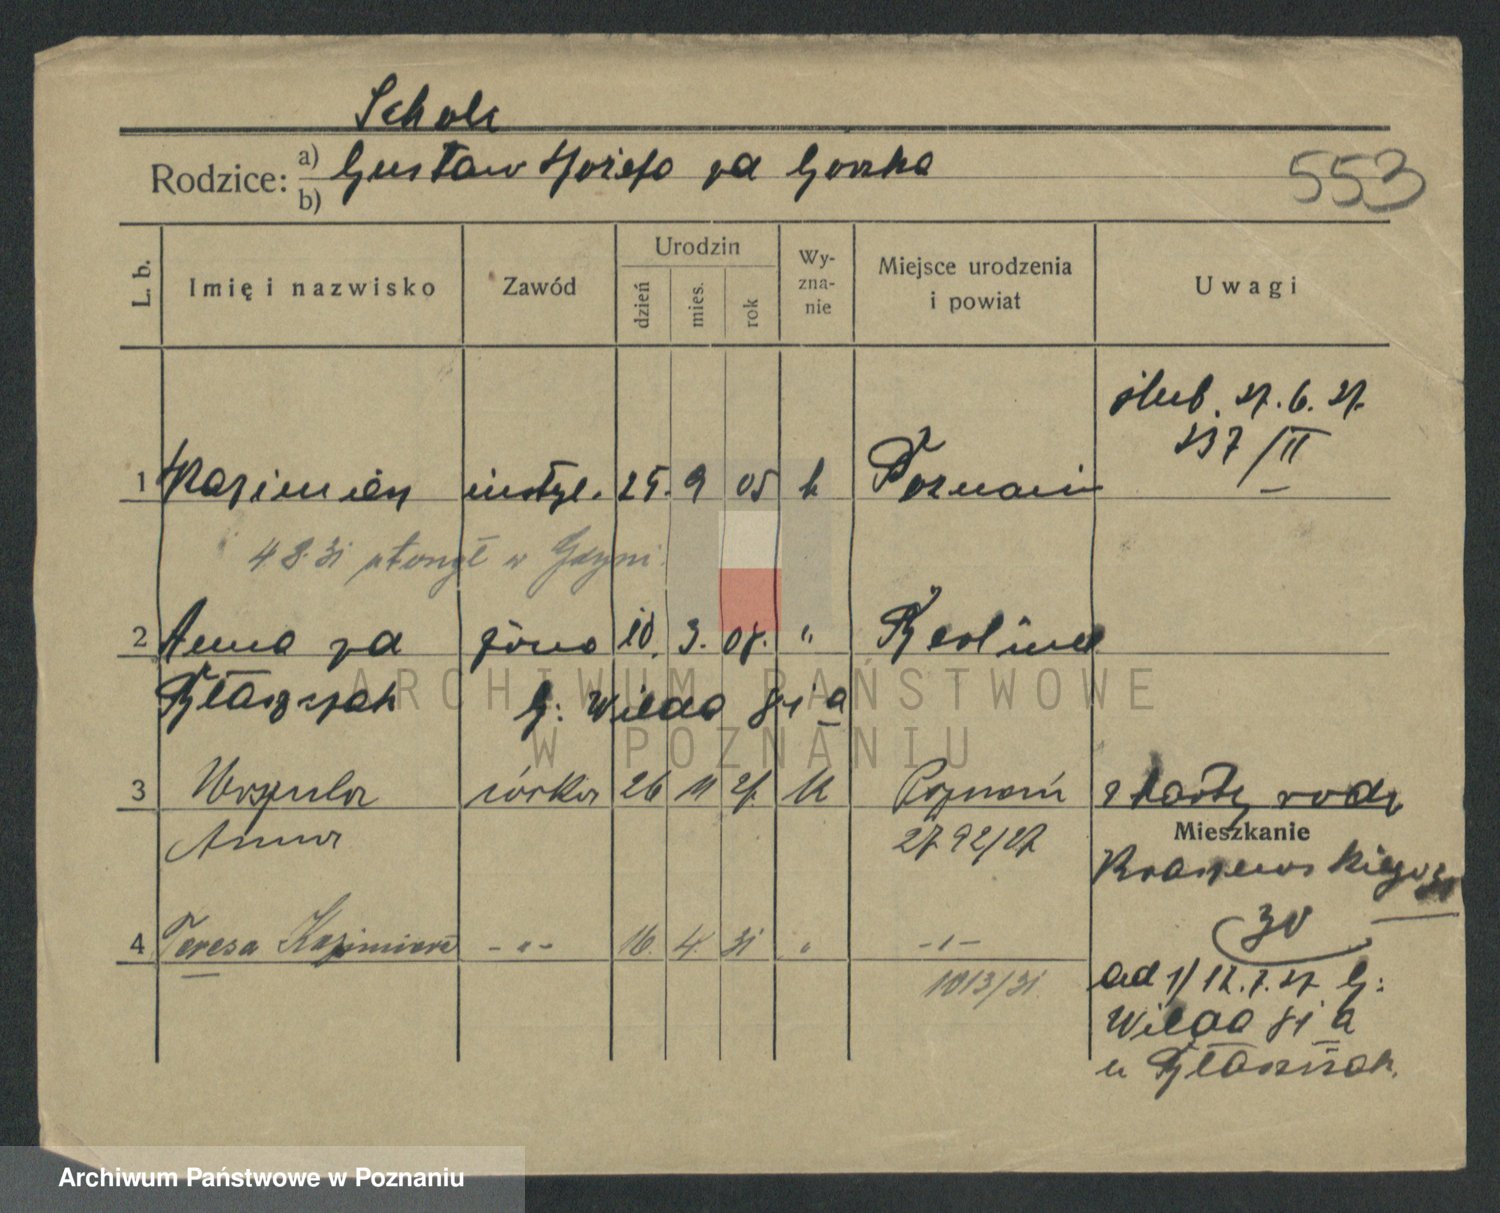 Scholz
Rodzice: a) Gustaw Józefa zd Górska
b)
553
L. b. Imię i nazwisko Zawód Urodzin dzień mies. rok Wy-zna-nie Miejsce urodzenia i powiat Uwagi
ślub. 27. 6. 27.
137/II
1 Kazimierz instyl. 25. 9 05 k Poznań
4 8. 31 utonął w Gdyni.
2 Anna zd żona 10. 3. 08. " Berlin
Błaszczak G: Wilda 81 a
3 Urszula córka 26 11 27 k Poznań z karty rodz
Anna 2792/27
Mieszkanie
Kraszewskiego
30
4 Teresa Kazimiera - " - 16. 4. 31 " - " -
1013/31
ad 1/ 12. 7. 27 G:
Wilda 81 a
u Błaszczak.
ARCHIWUM PAŃSTWOWE
W POZNANIU
Archiwum Państwowe w Poznaniu